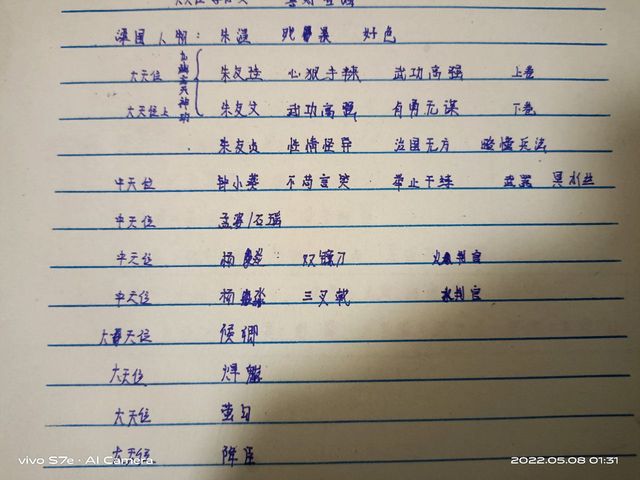 梁国人物：朱温 好色
大天位 朱友珪 心狠手辣 武功高强 上卷
九幽玄天神功
大天位上 朱友文 武功高强 有勇无谋 下卷
朱友贞 性情怪异 治国无方 暗懂兵法
中天位 钟小葵 不苟言笑 举止干练 武器 冥水丝
中天位 孟婆/石瑶
中天位 杨焱 双镰刀 火判官
中天位 杨淼 三叉戟 水判官
大天位 候卿
大天位 焊魃
大天位 萤勾
大天位 降臣
vivo S7e · AI Camera
2022.05.08 01:31